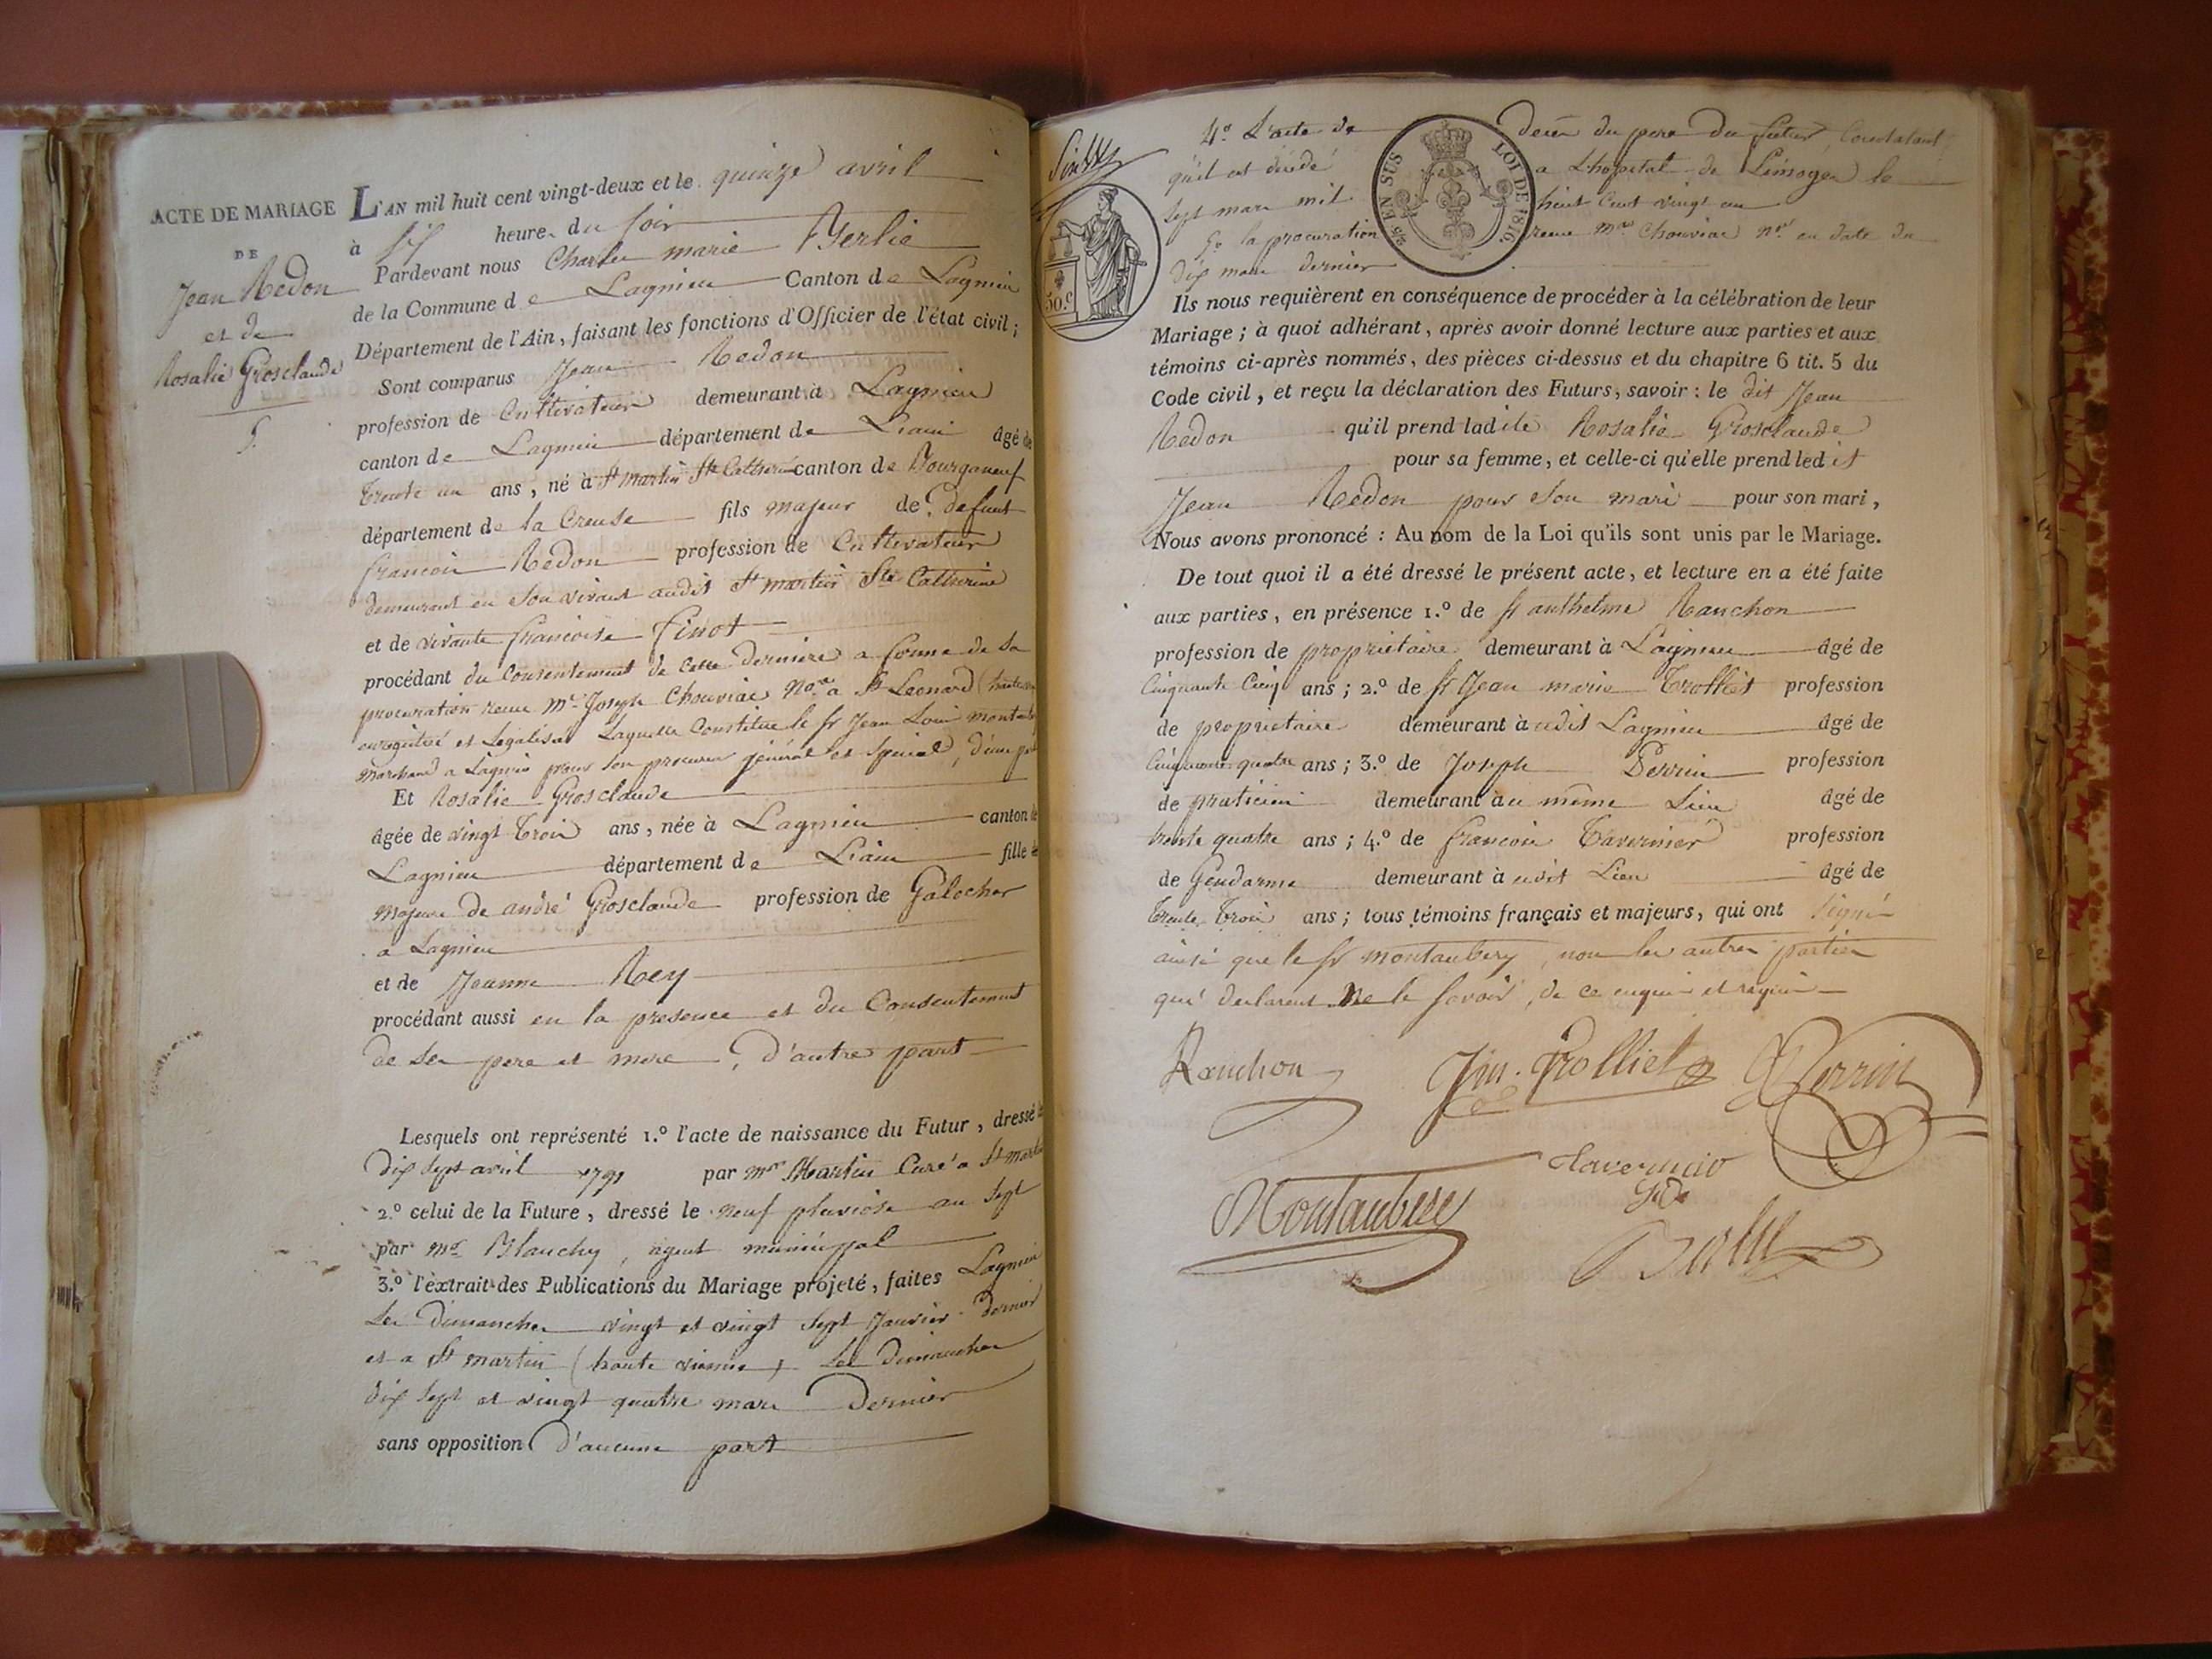 ACTE DE MARIAGE
DE
Jean Redon
et de
Rosalie Grosclaude
5.
L'AN mil huit cent vingt-deux et le quinze avril
à six heures du soir
Pardevant nous Charles marie Berlie
de la Commune de Lagnieu Canton de Lagnieu
Département de l'Ain, faisant les fonctions d'Officier de l'état civil;
Sont comparus Jean Redon
profession de Cultivateur demeurant à Lagnieu
canton de Lagnieu département de Liain âgé de
trente un ans, né à St martin Ste Catherine canton de Bourganeuf
département de la Creuse fils majeur de defunt
francois Redon profession de Cultivateur
demeurant en son vivant audit St martin Ste Catherine
et de vivante francoise Finot
procédant du Consentement de cette derniere a forme de sa
procuration recue Me Joseph Chouviac Nore a St Leonard (haute
enregistré et Legalisée Laquelle Constitue le sr Jean Loui
marchand a Lagnieu pour son procureur général et spécial, d'une part
Et Rosalie Grosclaude
âgée de vingt trois ans, née à Lagnieu canton de
Lagnieu département de Liain fille
majeure de andré Grosclaude profession de Galocher
a Lagnieu
et de Jeanne Rey
procédant aussi en la presence et du Consentement
de ses pere et mere, d'autre part
Lesquels ont représenté 1.º l'acte de naissance du Futur, dressé le
dix sept avril 1791 par mre Martin Curé a St martin
2.º celui de la Future, dressé le neuf pluviose an sept
par mr Blanchy, agent municipal
3.º l'extrait des Publications du Mariage projeté, faites Lagnieu
les Dimanches vingt et vingt sept Janvier dernier
et a St martin (haute vienne) les dimanches
dix sept et vingt quatre mars Dernier
sans opposition d'aucune part
50.c
2/5 EN SUS
LOI DE 1816.
4º L'acte de deces du pere du futur, Constatant
qu'il est décédé a L'hopital de Limoges le
sept mars mil huit cent vingt un
5º la procuration recue Me Chouviac nre en date du
dix mars dernier
Ils nous requièrent en conséquence de procéder à la célébration de leur
Mariage; à quoi adhérant, après avoir donné lecture aux parties et aux
témoins ci-après nommés, des pièces ci-dessus et du chapitre 6 tit. 5 du
Code civil, et reçu la déclaration des Futurs, savoir: le dit Jean
Redon qu'il prend ladite Rosalie Grosclaude
pour sa femme, et celle-ci qu'elle prend ledit
Jean Redon pour son mari pour son mari,
Nous avons prononcé: Au nom de la Loi qu'ils sont unis par le Mariage.
De tout quoi il a été dressé le présent acte, et lecture en a été faite
aux parties, en présence 1.º de sr anthelme Ranchon
profession de propriétaire demeurant à Lagnieu âgé de
Cinquante Cinq ans; 2.º de sr Jean marie Trolliet profession
de proprietaire demeurant à udit Lagnieu âgé de
Cinquante quatre ans; 3.º de Joseph Perrin profession
de praticien demeurant au même Lieu âgé de
trente quatre ans; 4.º de francois Tavernier profession
de Gendarme demeurant à udit Lieu âgé de
trente trois ans; tous témoins français et majeurs, qui ont signé
ainsi que le sr montaubery, non les autres parties
qui declarent ne le savoir, de ce enquis et requis
Ranchon Jm. Trolliet Perrin
Tavernier
Gde
Montaubery
Berlie